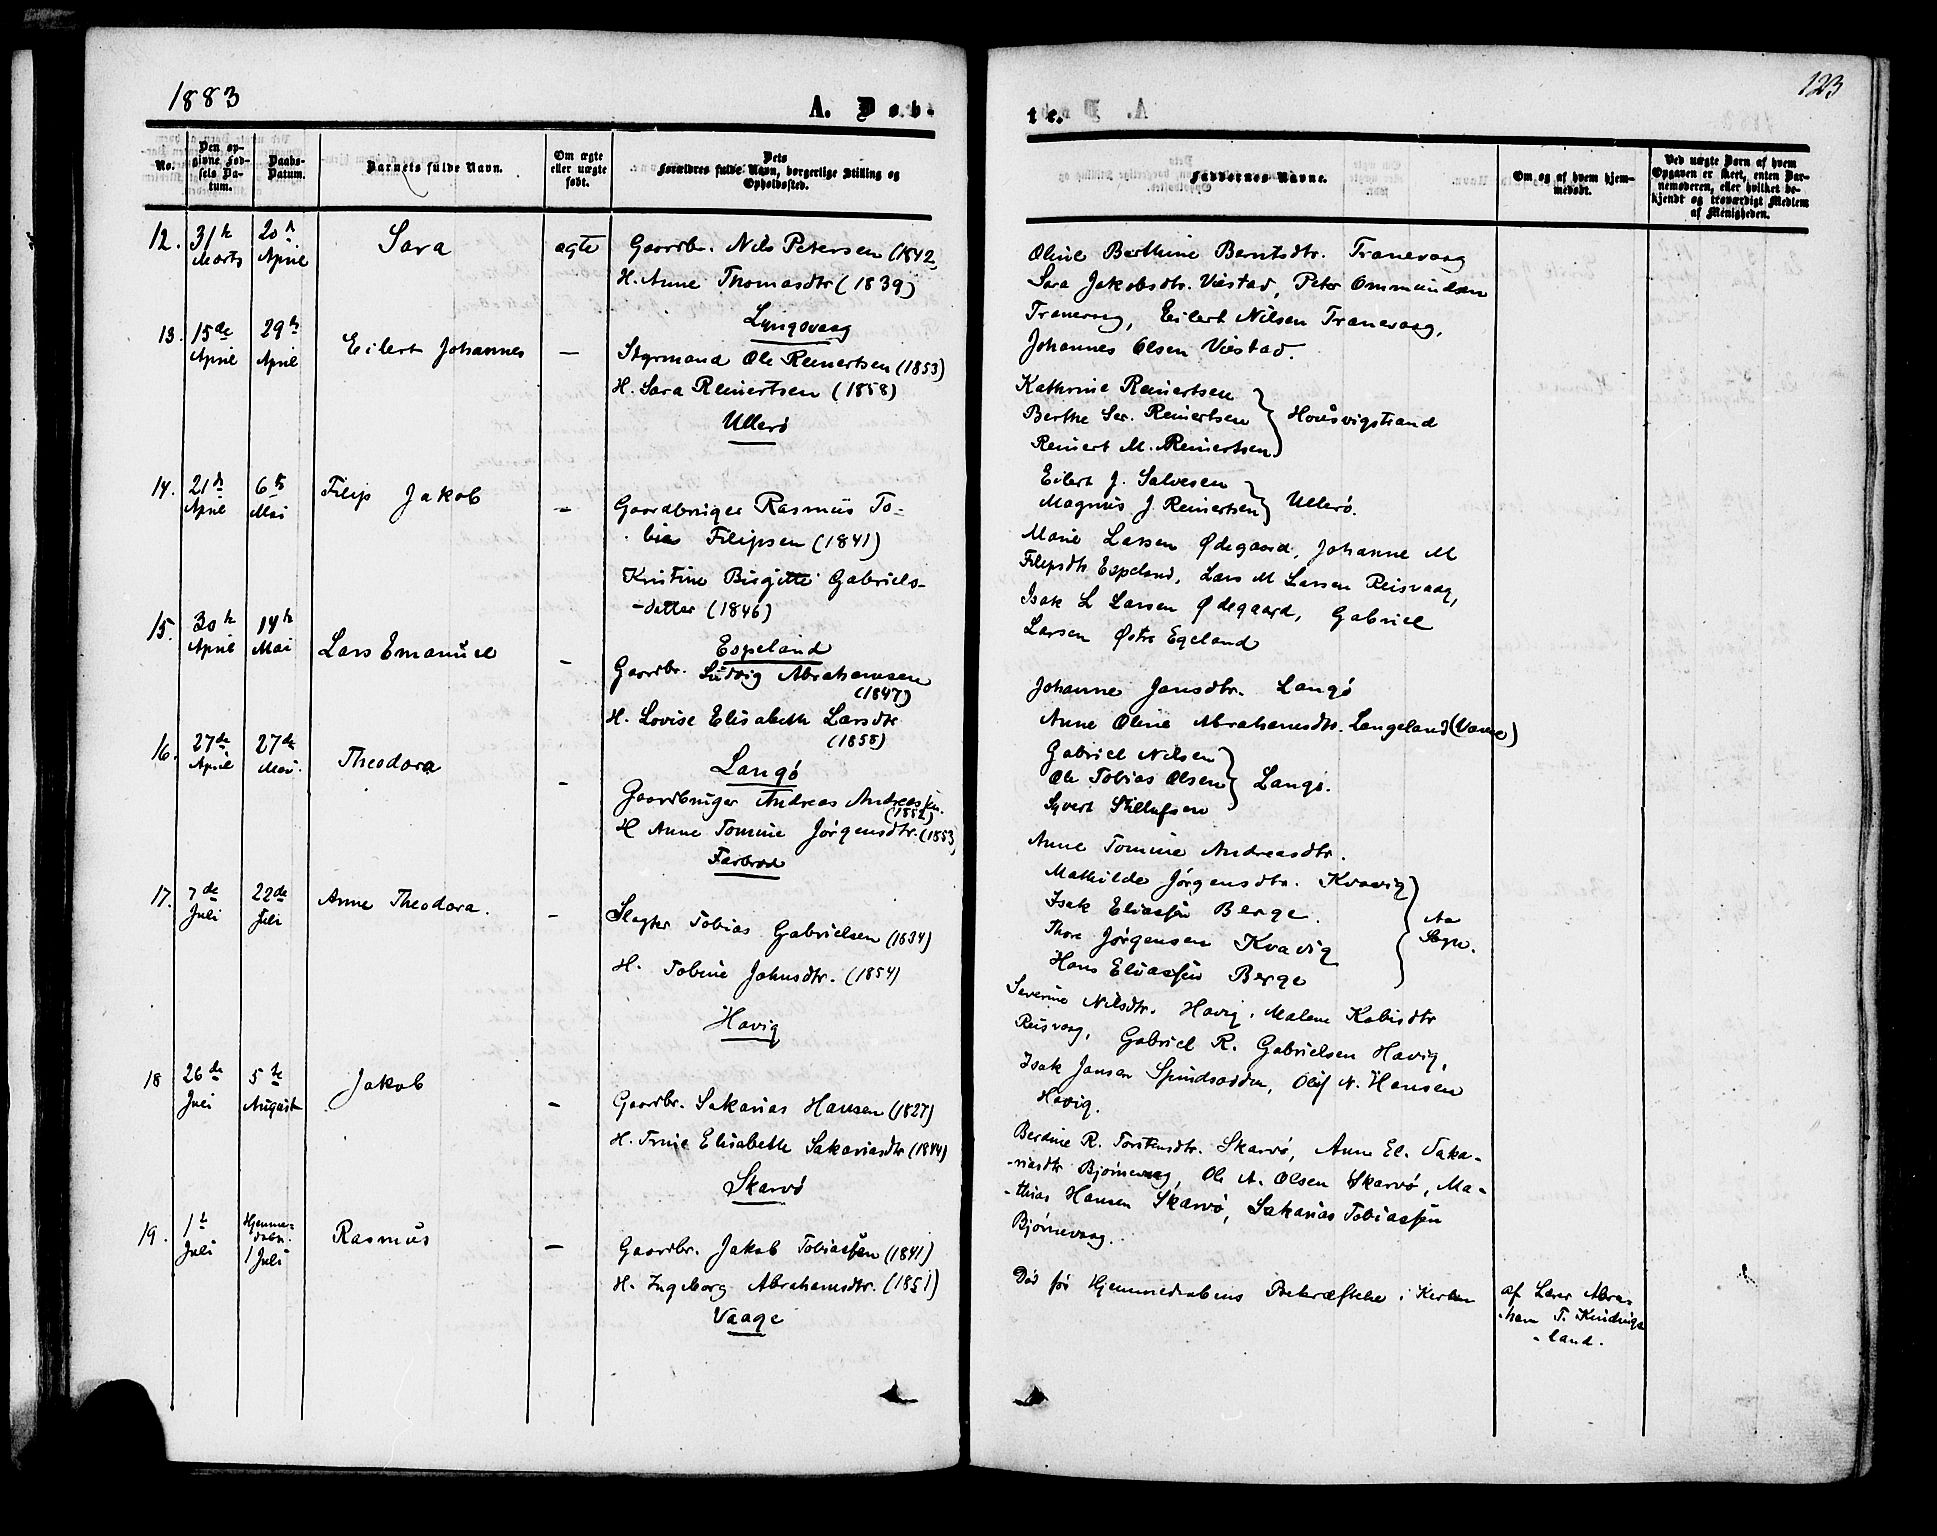 1883
A. Døb-
No.
Den op-
givne Fød-
sels Da-
tum.
Daabs-
Datum.
Barnets fulde Navn.
Om ægte
eller uægte
født.
Dets
Forældres fulde Navn, borgerlige Stilling og
Opholdssted.
12.
31te
Marts
20de
April
Sara
ægte
Gaardbr. Nils Petersen (1842,
H. Anne Thomasdtr (1839)
Lyngsvaag
13.
15de
April
29de
April
Eilert Johannes
—
Styrmand Ole Reinertsen (1853)
H. Sara Reinertsen (1858)
Ullerø
14.
21de
April
6te
Mai
Filip Jakob
—
Gaardbruger Rasmus To-
bias Filipsen (1841)
Kristine Birgitte Gabriels-
-datter (1846)
Espeland
15.
30te
April
14de
Mai
Lars Emanuel
—
Gaardbr. Ludvig Abrahamsen
(1847)
H. Lovise Elisabeth Larsdtr
(1858)
Langø
16.
27de
April
27de
Mai.
Theodora
—
Gaardbruger Andreas Andreassen.
(1852)
H Anne Tomine Jørgensdtr. (1853,
Farbrod
17.
7de
Juli
22de
Juli
Anne Theodora.
—
Slagter Tobias Gabrielsen (1834)
H. Tobine Johnsdtr. (1854)
Havig
18
26de
Juli
5te
August
Jakob
—
Gaardbr. Sakarias Hansen (1827)
H. Trine Elisabeth Sakariasdtr (1844)
Skarvø
19.
1te
Juli
Hjemme-
døbt.
1 Juli
Rasmus
—
Gaardbr. Jakob Tobiassen (1841)
H. Ingeborg Abrahamsdtr. (1851)
Vaage
123
te.
Faddernes Navne.
Om og af hvem hjem-
medøbt.
Ved uægte Børn af hvem
Opgaven er skeet, enten Bar-
nemoderen, eller hvilket be-
kjendt og troværdigt Medlem
af Menigheden.
Oline Berthine Berntsdtr. Tranevaag
Sara Jakobsdtr. Viestad, Peter Ommundsen
Tranevaag, Eilert Nilsen Tranevaag,
Johannes Olsen Viestad.
Kathrine Reinertsen
Berthe Ser. Reinertsen
Reinert M. Reinertsen
Housvigstrand
Eilert J. Salvesen
Magnus J. Reinertsen
Ullerø.
Marie Larsen Ødegaard, Johanne M
Filipsdtr Espeland, Lars M Larsen Reisvaag,
Isak L Larsen Ødegaard, Gabriel
Larsen Østre Egeland
Johanne Jansdtr. Langø
Anne Oline Abrahamsdtr. Langeland (Vanse)
Gabriel Nilsen
Ole Tobias Olsen
Syvert Stillufsen
Langø.
Anne Tomine Andreasdtr.
Mathilde Jørgensdtr. Kvavig
Isak Eliassen Berge.
Thore Jørgensen Kvavig
Hans Eliassen Berge
Aa
Sogn.
Severine Nilsdtr. Havig, Malene Kabisdtr
Reisvaag, Gabriel R. Gabrielsen Havig,
Isak Jansen Spindsodden, Oluf N. Hansen
Havig.
Berdine R. Torstensdtr. Skarvø, Anne El. Saka-
-riasdtr Bjørnevaag, Ole A. Olsen Skarvø, Ma-
-thias Hansen Skarvø, Sakarias Tobiassen
Bjørnevaag.
Død før Hjemmedaabens Bekræftelse i Kirken
af Lærer Abra-
-ham T. Kindinge
-land.